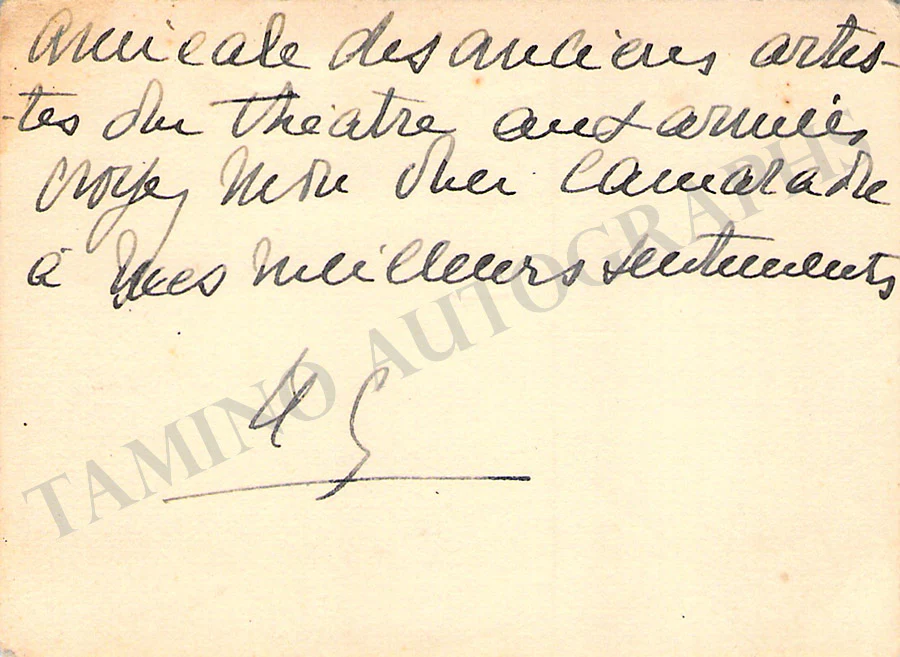 Amicale des anciens artis-
-tes du théatre aux armées
croyez mon cher camarade
à mes meilleurs sentiments
TAMINO AUTOGRAPHS